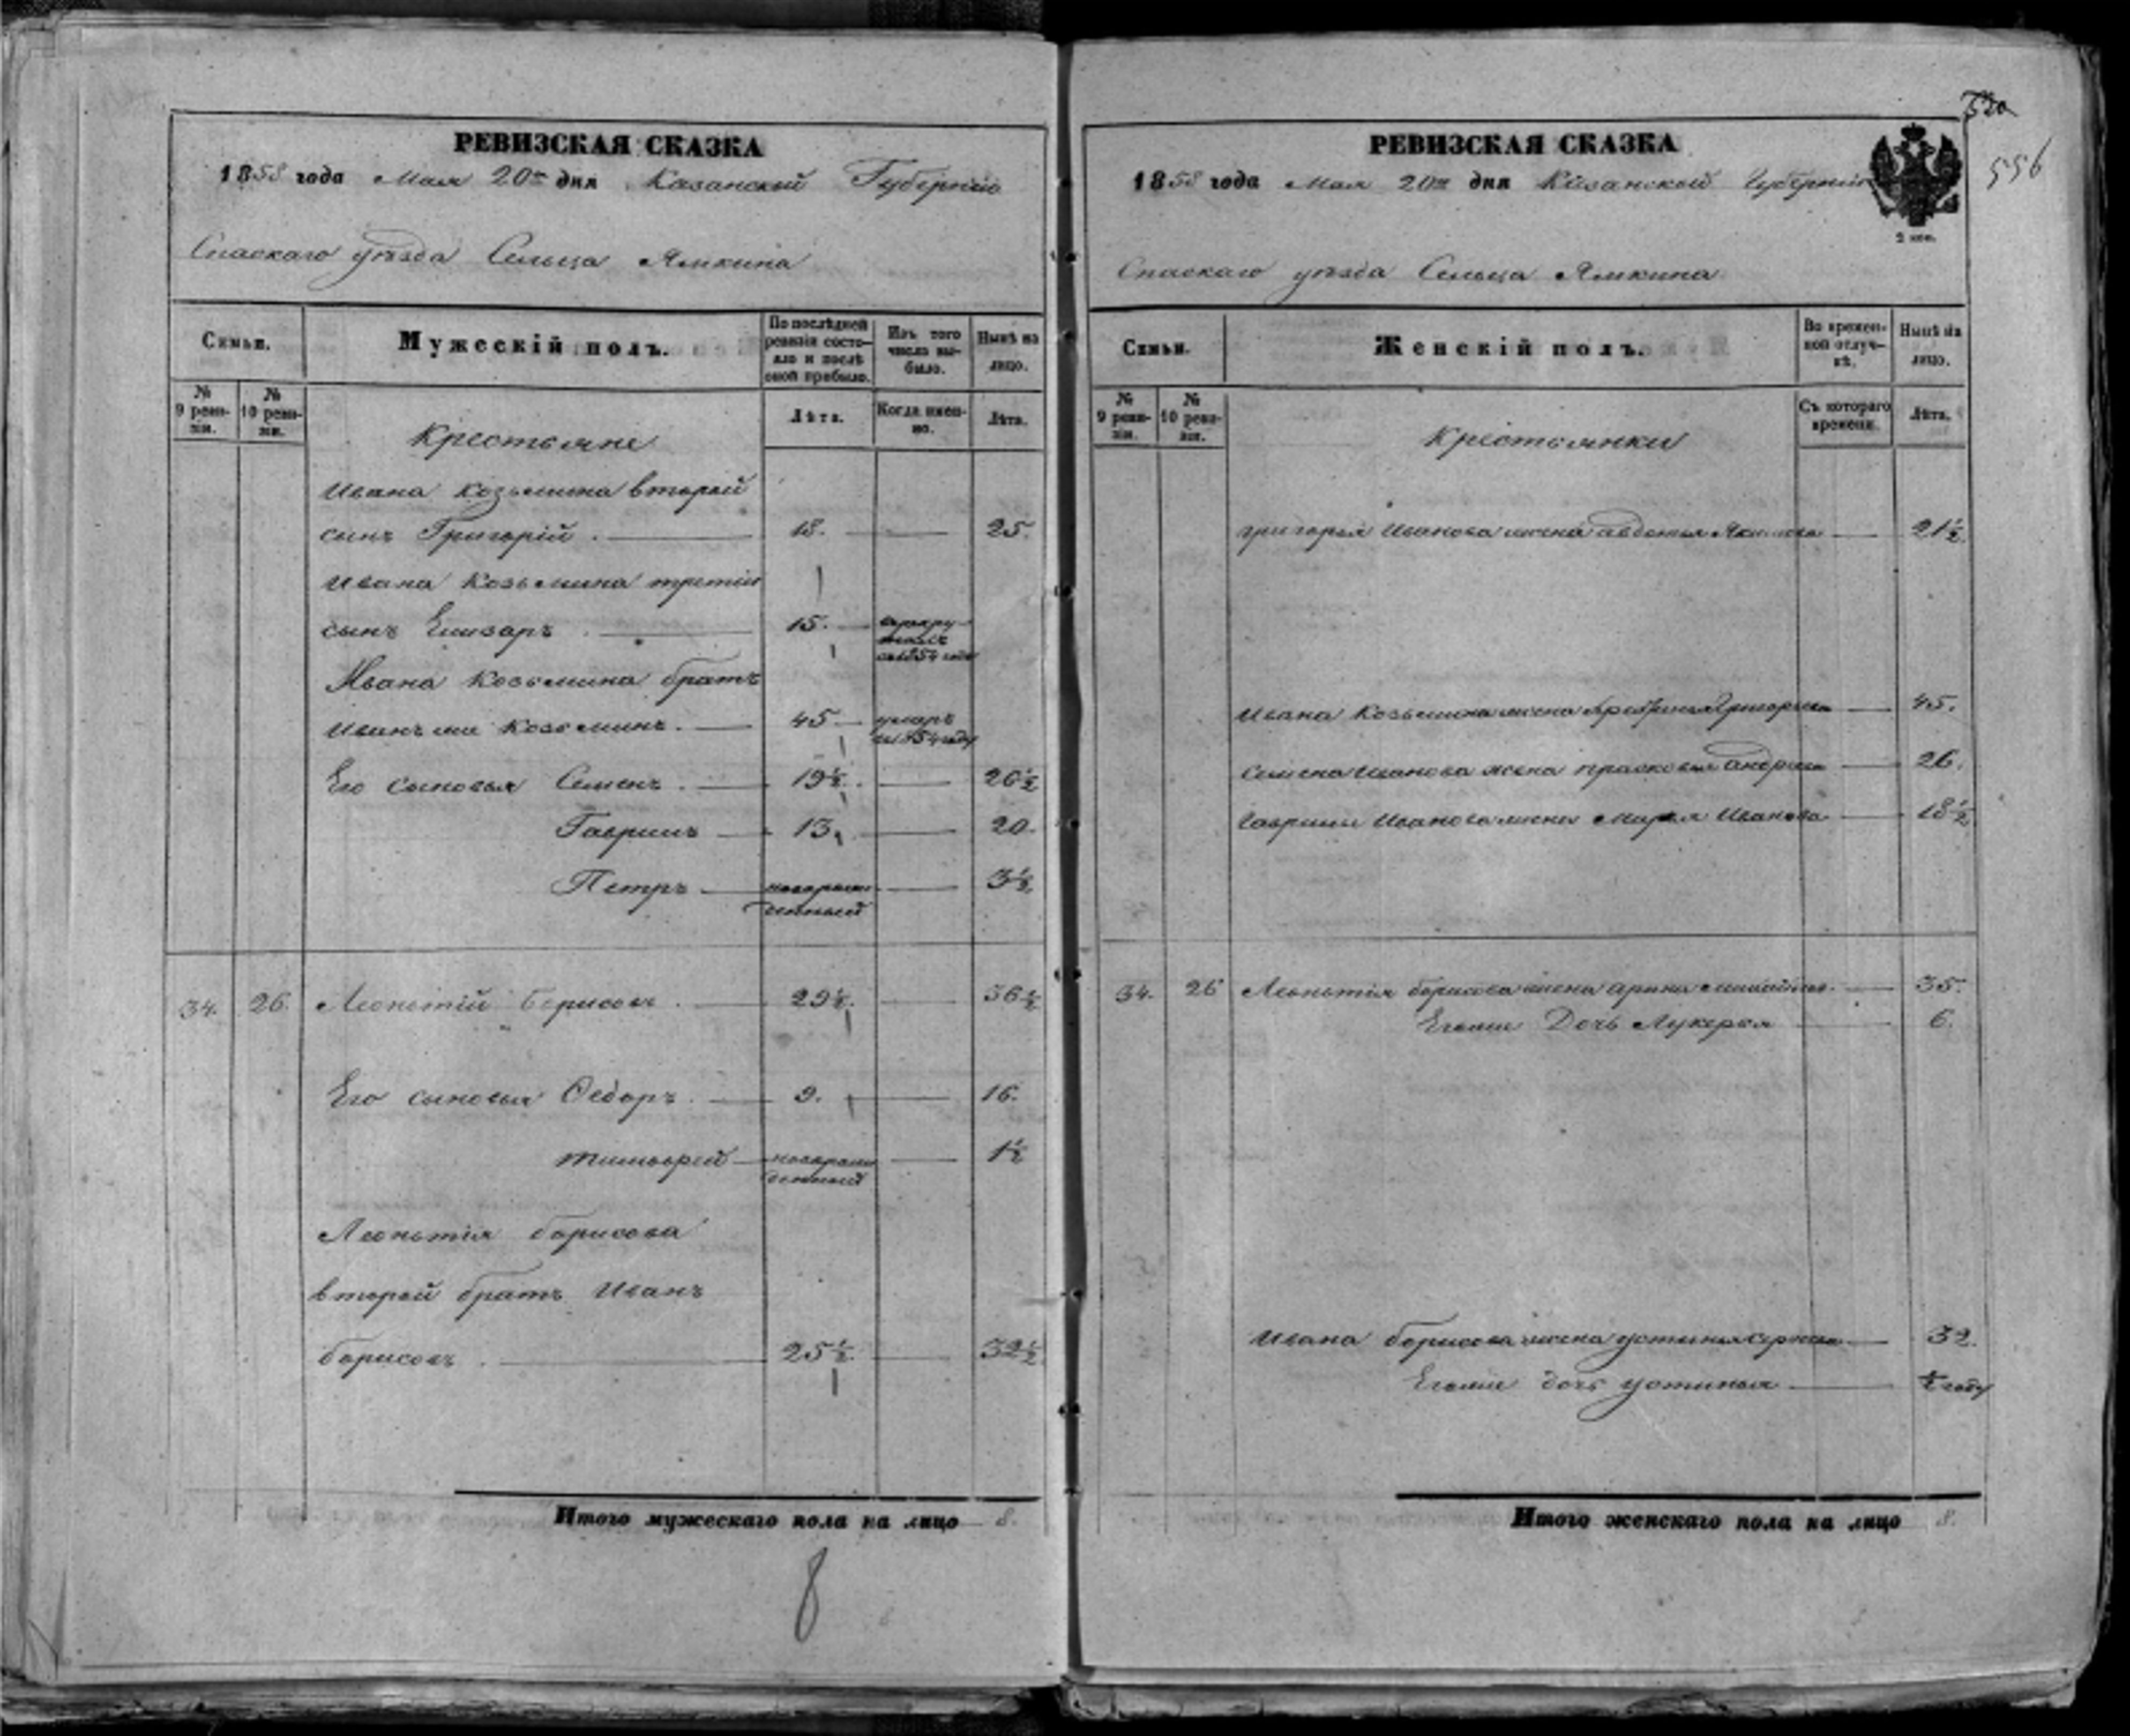 РЕВИЗСКАЯ СКАЗКА
1858 года Мая 20го дня Казанской Губернии
Спаскаго уѣзда Сельца Ямкина
Семьи.
Мужескій полъ.
По послѣдней ревизіи состояло и послѣ оной прибыло.
Изъ того числа выбыло.
Нынѣ на лицо.
№ 9 ревизіи.
№ 10 ревизіи.
Лѣта.
Когда именно.
Лѣта.
Крестьяне
Ивана Козьмина второй
сынъ Григорій 18. 25.
Ивана Козьмина третій
сынъ Елизаръ 15. въ рекрутахъ съ 1854 года
Ивана Козьмина братъ
Иванъ же Козьминъ. 45 умеръ въ 1854 году
Его сыновья Семенъ 19½ 26½
Гаврилъ 13. 20.
Петръ новорожденный 3½
34. 26. Леонтій Борисовъ 29½. 36½
Его сыновья Ѳедоръ. 9. 16.
Тимоѳей новорожденный 1½
Леонтія Борисова
второй братъ Иванъ
Борисовъ 25½ 32½
Итого мужескаго пола на лицо 8.
8
520
556
РЕВИЗСКАЯ СКАЗКА
1858 года Мая 20го дня Казанской Губернии
2 коп.
Спаскаго уѣзда Сельца Ямкина
Семьи.
Женскій полъ.
Во временной отлучкѣ.
Нынѣ на лицо.
№ 9 ревизіи.
№ 10 ревизіи.
Съ котораго времени.
Лѣта.
Крестьянки
Григорья Иванова жена Авдотья 21½
Ивана Козьмина жена Григорьева 45.
Семена Иванова жена Прасковья Андреева 26.
Гаврилы Иванова жена Марья Иванова 18½
34. 26 Леонтія Борисова жена Арина 35.
Егоже Дочь Лукерья 6.
Ивана Борисова жена Устинья 32.
Егоже дочь Устинья ½ году
Итого женскаго пола на лицо 8.